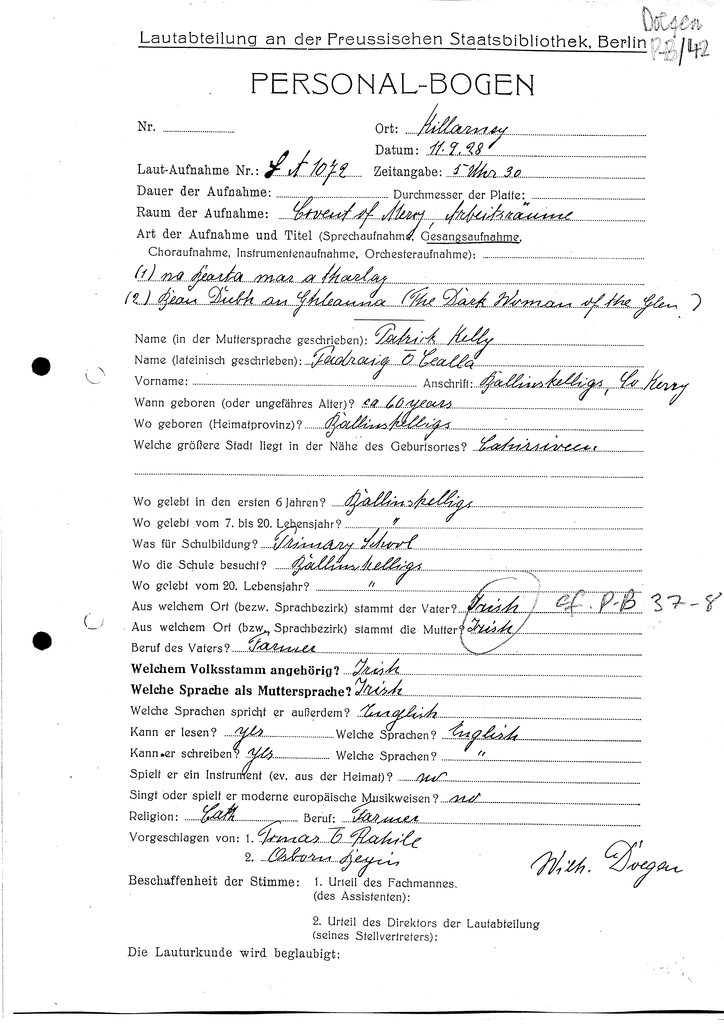 Doegen
P-B/42
Lautabteilung an der Preussischen Staatsbibliothek, Berlin
PERSONAL-BOGEN
Nr. Ort: Killarney
Datum: 11.9.28
Laut-Aufnahme Nr.: LA 1072 Zeitangabe: 5 Uhr 30
Dauer der Aufnahme: Durchmesser der Platte:
Raum der Aufnahme: Covent of Mercy, Arbeitsräume
Art der Aufnahme und Titel (Sprechaufnahme, Gesangsaufnahme,
Choraufnahme, Instrumentenaufnahme, Orchesteraufnahme):
(1) na bearta mar a tharlay
(2) Bean Dubh an Ghleanna (The Dark Woman of the Glen)
Name (in der Muttersprache geschrieben): Patrick Kelly
Name (lateinisch geschrieben): Padraig Ó Cealla
Vorname: Anschrift: Ballinskelligs, Co Kerry
Wann geboren (oder ungefähres Alter)? ca 60 years
Wo geboren (Heimatprovinz)? Ballinskelligs
Welche größere Stadt liegt in der Nähe des Geburtsortes? Cahirsiveen
Wo gelebt in den ersten 6 Jahren? Ballinskelligs
Wo gelebt vom 7. bis 20. Lebensjahr? "
Was für Schulbildung? Primary School
Wo die Schule besucht? Ballinskelligs
Wo gelebt vom 20. Lebensjahr? "
Aus welchem Ort (bezw. Sprachbezirk) stammt der Vater? Irish cf. P-B 37-8
Aus welchem Ort (bzw. Sprachbezirk) stammt die Mutter? Irish
Beruf des Vaters? Farmer
Welchem Volksstamm angehörig? Irish
Welche Sprache als Muttersprache? Irish
Welche Sprachen spricht er außerdem? English
Kann er lesen? yes Welche Sprachen? English
Kann er schreiben? yes Welche Sprachen? "
Spielt er ein Instrument (ev. aus der Heimat)? no
Singt oder spielt er moderne europäische Musikweisen? no
Religion: Cath Beruf: Farmer
Vorgeschlagen von: 1. Tomas O Rahille
2. Osborn Bergin
Wilh. Doegen
Beschaffenheit der Stimme: 1. Urteil des Fachmannes.
(des Assistenten):
2. Urteil des Direktors der Lautabteilung
(seines Stellvertreters):
Die Lauturkunde wird beglaubigt: